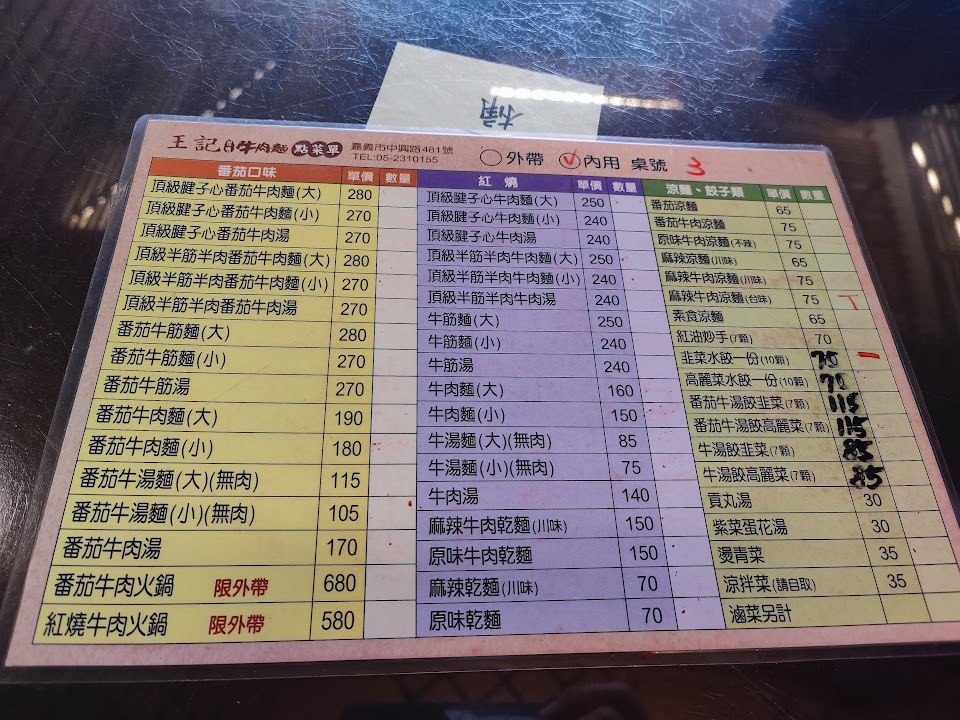 王記 牛肉麵 點菜單
嘉義市中興路481號
TEL:05-2310155
外帶 內用 桌號 3
番茄口味 單價 數量
頂級腱子心番茄牛肉麵(大) 280
頂級腱子心番茄牛肉麵(小) 270
頂級腱子心番茄牛肉湯 270
頂級半筋半肉番茄牛肉麵(大) 280
頂級半筋半肉番茄牛肉麵(小) 270
頂級半筋半肉番茄牛肉湯 270
番茄牛筋麵(大) 280
番茄牛筋麵(小) 270
番茄牛筋湯 270
番茄牛肉麵(大) 190
番茄牛肉麵(小) 180
番茄牛湯麵(大)(無肉) 115
番茄牛湯麵(小)(無肉) 105
番茄牛肉湯 170
番茄牛肉火鍋 限外帶 680
紅燒牛肉火鍋 限外帶 580
紅燒 單價 數量
頂級腱子心牛肉麵(大) 250
頂級腱子心牛肉麵(小) 240
頂級腱子心牛肉湯 240
頂級半筋半肉牛肉麵(大) 250
頂級半筋半肉牛肉麵(小) 240
頂級半筋半肉牛肉湯 240
牛筋麵(大) 250
牛筋麵(小) 240
牛筋湯 240
牛肉麵(大) 160
牛肉麵(小) 150
牛湯麵(大)(無肉) 85
牛湯麵(小)(無肉) 75
牛肉湯 140
麻辣牛肉乾麵(川味) 150
原味牛肉乾麵 150
麻辣乾麵(川味) 70
原味乾麵 70
涼麵、餃子類 單價 數量
番茄涼麵 65
番茄牛肉涼麵 75
原味牛肉涼麵(不辣) 75
麻辣涼麵(川味) 65
麻辣牛肉涼麵(川味) 75
麻辣牛肉涼麵(台味) 75
素食涼麵 65
紅油炒手(7顆) 70
韭菜水餃一份(10顆) 70
高麗菜水餃一份(10顆) 70
番茄牛湯餃韭菜(7顆) 115
番茄牛湯餃高麗菜(7顆) 115
牛湯餃韭菜(7顆) 85
牛湯餃高麗菜(7顆) 85
貢丸湯 30
紫菜蛋花湯 30
燙青菜 35
涼拌菜(請自取) 35
滷菜另計